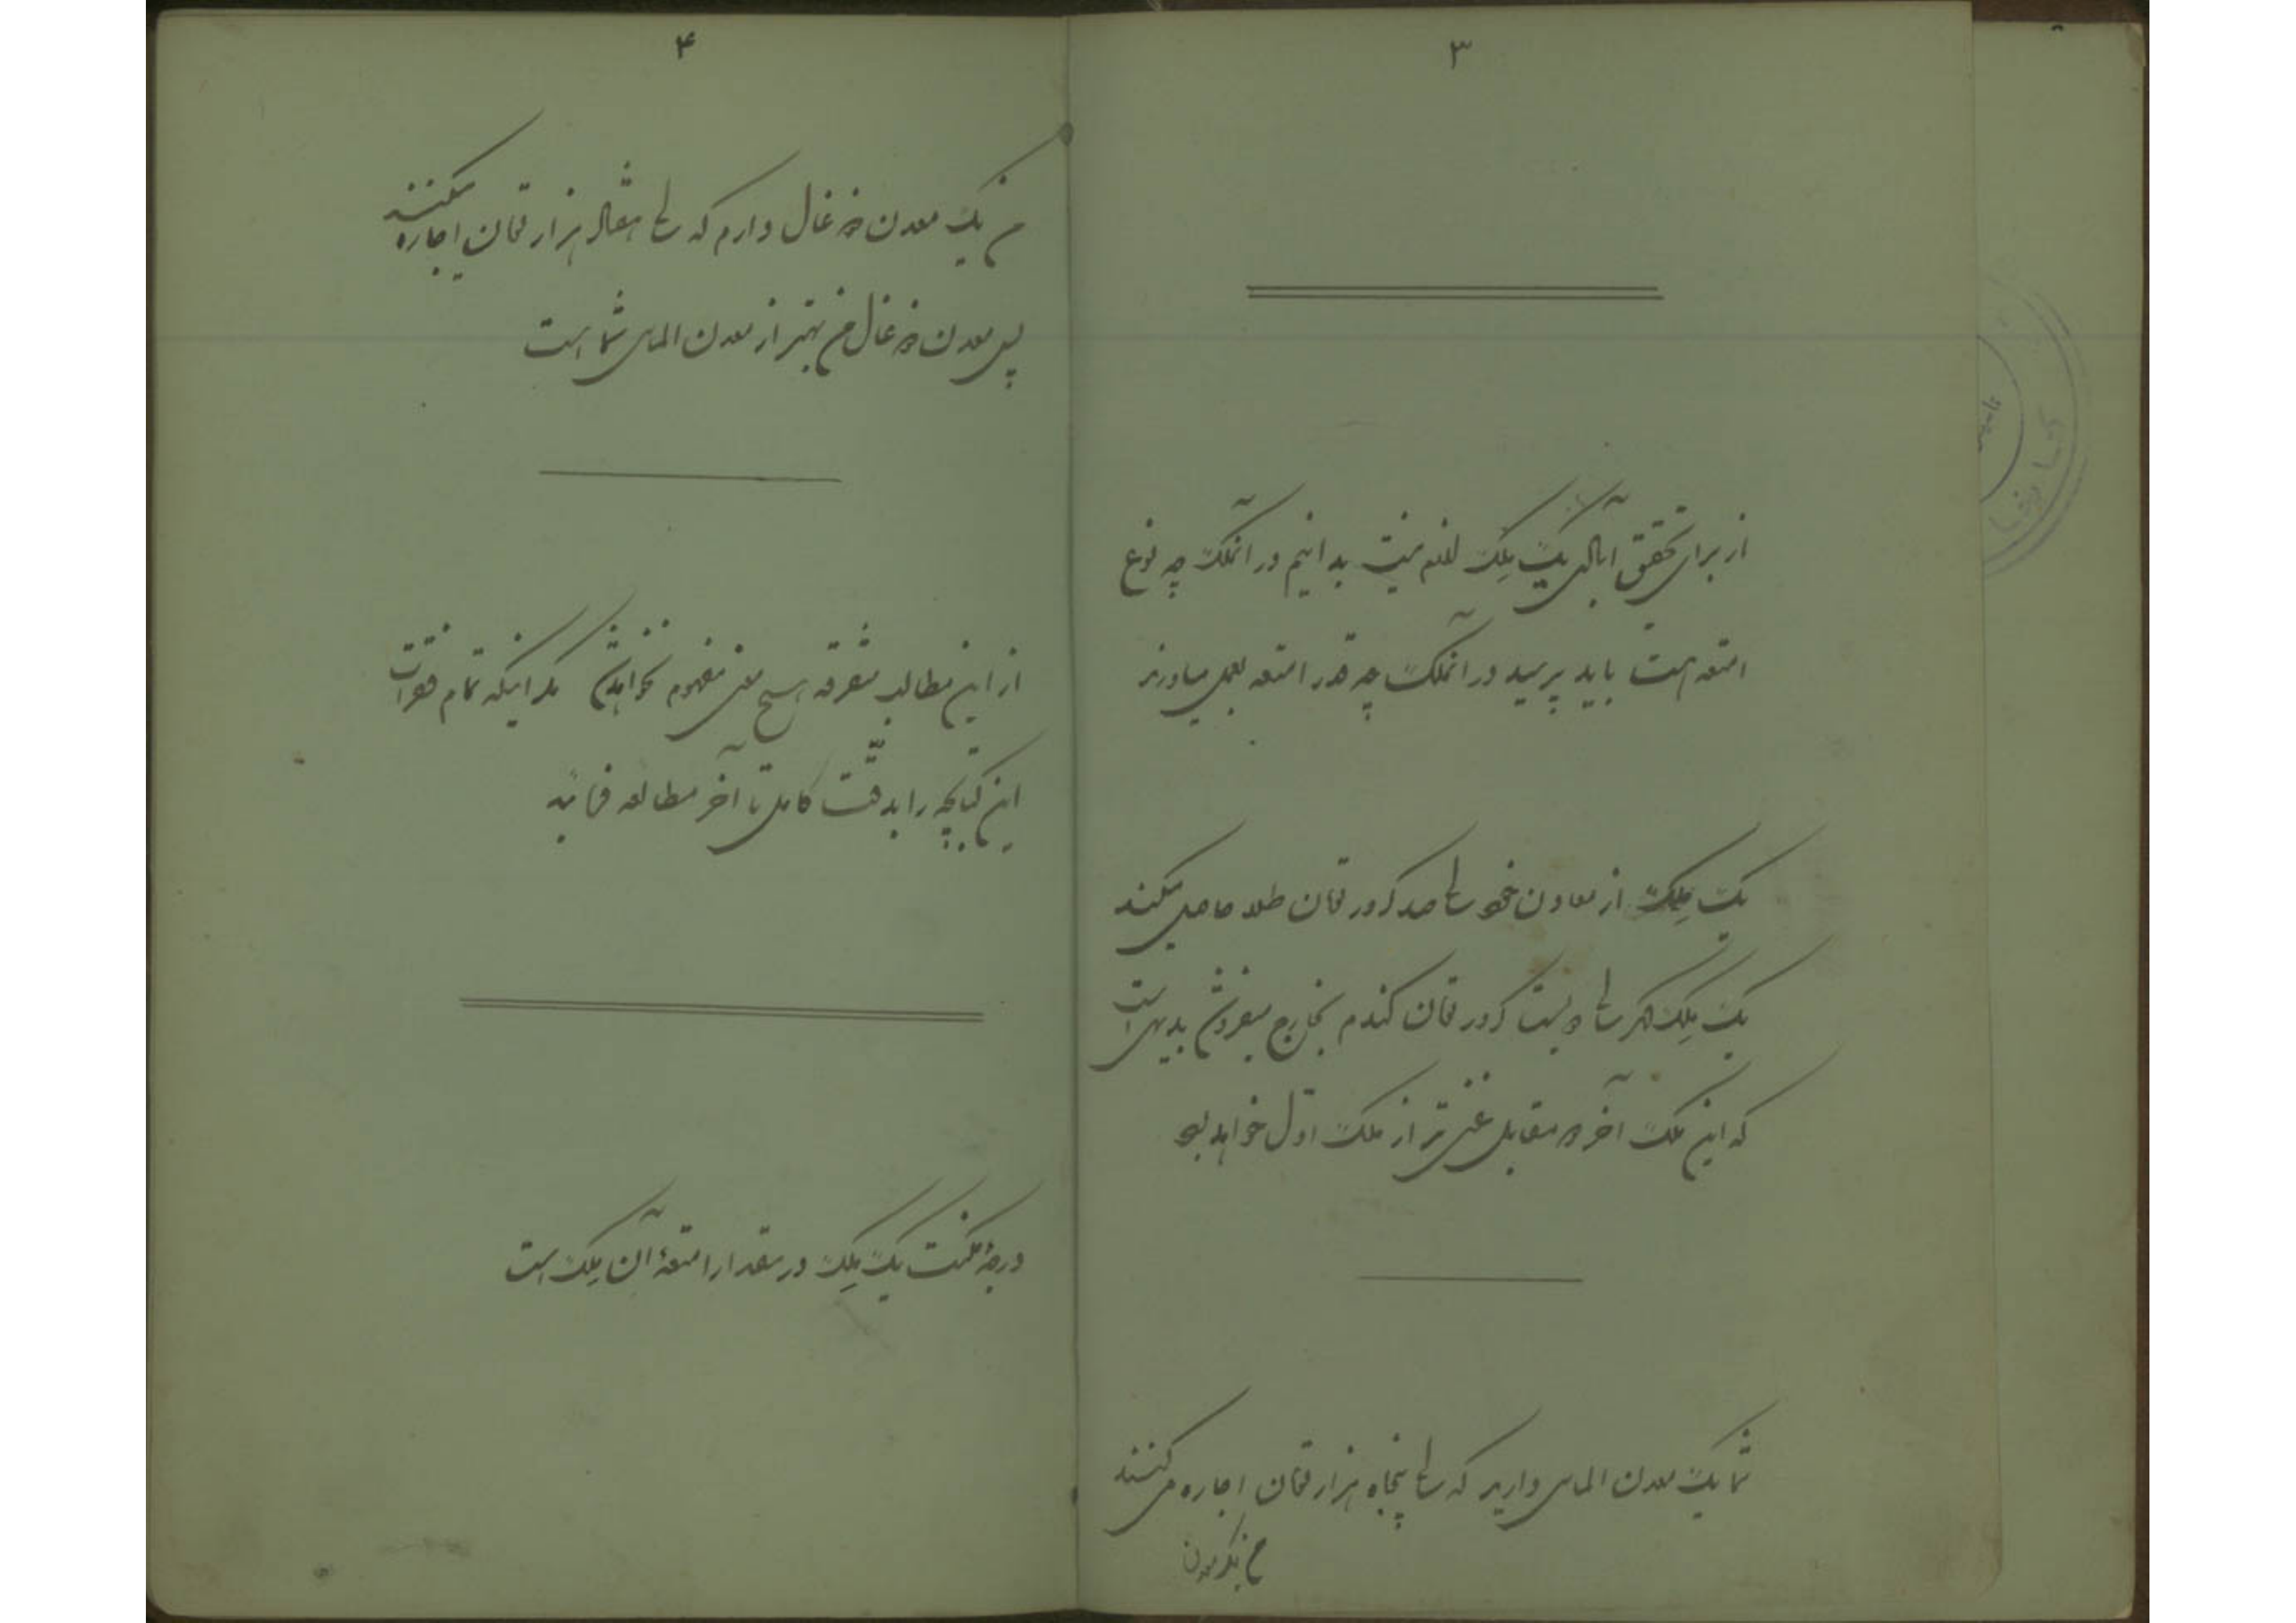 ۳
از برای تحقیق آبادی یک ملک لازم نیست بدانیم در آنملک چه نوع
امتعه هست باید پرسید در آنملک چه قدر امتعه بعمل میاورند
یک ملک از معادن خود سالی صد کرور تومان طلا حاصل میکند
یک ملک دیگر سالی دویست کرور تومان گندم بخارج میفروشد بدیهی است
که این ملک آخر در مقابل غنی تر از ملک اول خواهد بود
شما یک معدن الماس دارید که سالی پنجاه هزار تومان اجاره می کنند
من یک معدن
۴
من یک معدن زغال دارم که سالی هزار تومان اجاره میکنند
پس معدن زغال من بهتر از معدن الماس شما است
از این مطالب متفرقه هیچ معنی مفهوم نخواهد شد مگر اینکه تمام فقرات
این کتابچه را بدقّت کامل تا آخر مطالعه فرمایند
درجهٔ مکنت یک ملک در مقدار امتعهٔ آن ملک است